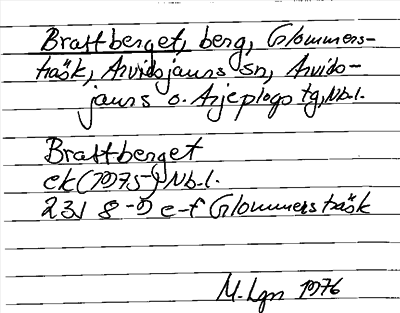 Brattberget, berg, Glommers-
träsk, Arvidsjaurs sn, Arvids-
jaurs o. Arjeplogs tg, Nb. l.
Brattberget
ek (1975) Nb. l.
23J 8-9 e-f Glommersträsk
M. Lgn 1976